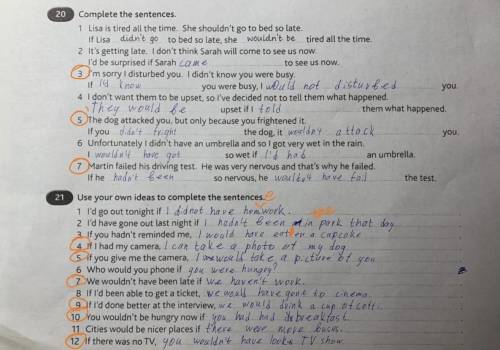 20 Complete the sentences.
1 Lisa is tired all the time. She shouldn't go to bed so late.
If Lisa didn't go to bed so late, she wouldn't be tired all the time.
2 It's getting late. I don't think Sarah will come to see us now.
I'd be surprised if Sarah came to see us now.
3 I'm sorry I disturbed you. I didn't know you were busy.
If I'd know you were busy, I would not disturbed you.
4 I don't want them to be upset, so I've decided not to tell them what happened.
They would be upset if I told them what happened.
5 The dog attacked you, but only because you frightened it.
If you didn't fright the dog, it wouldn't attack you.
6 Unfortunately I didn't have an umbrella and so I got very wet in the rain.
I wouldn't have got so wet if I'd had an umbrella.
7 Martin failed his driving test. He was very nervous and that's why he failed.
If he hadn't been so nervous, he wouldn't have fail the test.
21 Use your own ideas to complete the sentences.
1 I'd go out tonight if I didnot have homwork.
2 I'd have gone out last night if I hadn't been in park that day
3 If you hadn't reminded me, I would have a cupcake
4 If I had my camera, I can take a photo of my dog.
5 If you give me the camera, I would take a picture of you
6 Who would you phone if you were hungry?
7 We wouldn't have been late if we haven't work.
8 If I'd been able to get a ticket, we would have gone to cinema.
9 If I'd done better at the interview, we would drink a cup of
10 You wouldn't be hungry now if you had had breakfast.
11 Cities would be nicer places if there were more buses.
12 If there was no TV, you wouldn't have look TV show